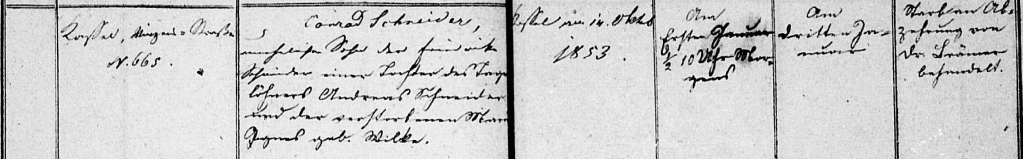 Kassel, Wiesen-Straße
N. 665.
Conrad Schneider,
unehelicher Sohn der
Schneider einer Tochter des Tage
löhners Andreas Schneider
und der verstorbenen
Agnes geb. Wilke.
Kassel am 14. Oktb
1853.
Am
Ersten Januar
1/2 10 Uhr Mor-
gens
Am
dritten Ja-
nuar
Starb an Ab-
zehrung von
Dr. Krämer
behandelt.